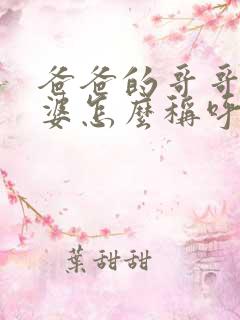 爸爸的哥哥
婆怎麼稱呼
葉甜甜